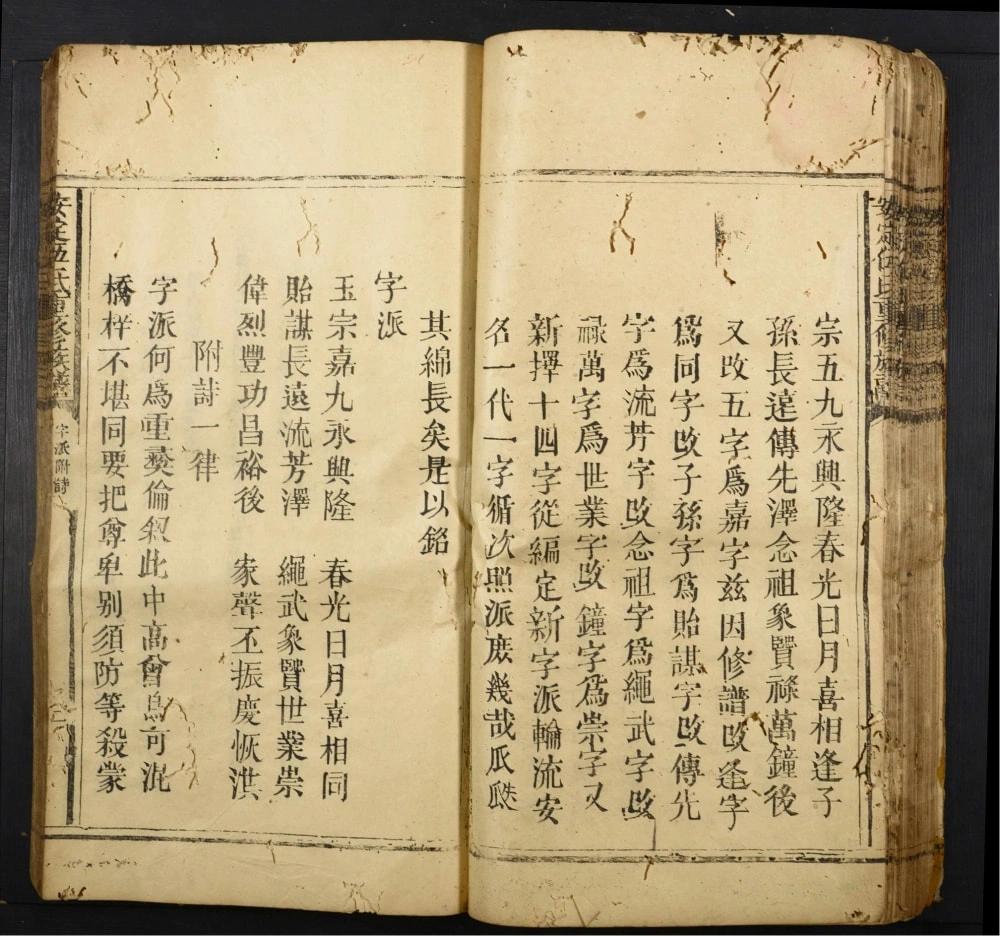 宗五九永興隆春光日月喜相逢子
孫長遠傳先澤念祖象賢祿萬鐘後
又改五字爲嘉字茲因修譜改逢字
爲同字改子孫字爲貽謀字改傳先
字爲流芳字改念祖字爲繩武字改
祿萬字爲世業字改鐘字爲崇字又
新擇十四字從編定新字派輪流安
名一代一字循次照派庶幾哉瓜瓞
其綿長矣是以銘
字派
玉宗嘉九永興隆 春光日月喜相同
貽謀長遠流芳澤 繩武象賢世業崇
偉烈豐功昌裕後 家聲丕振慶恢洪
附詩一律
字派何爲重彛倫叙此中高曾烏可混
橋梓不堪同要把尊卑别須防等殺蒙
安定伍氏重修族譜
字派附詩